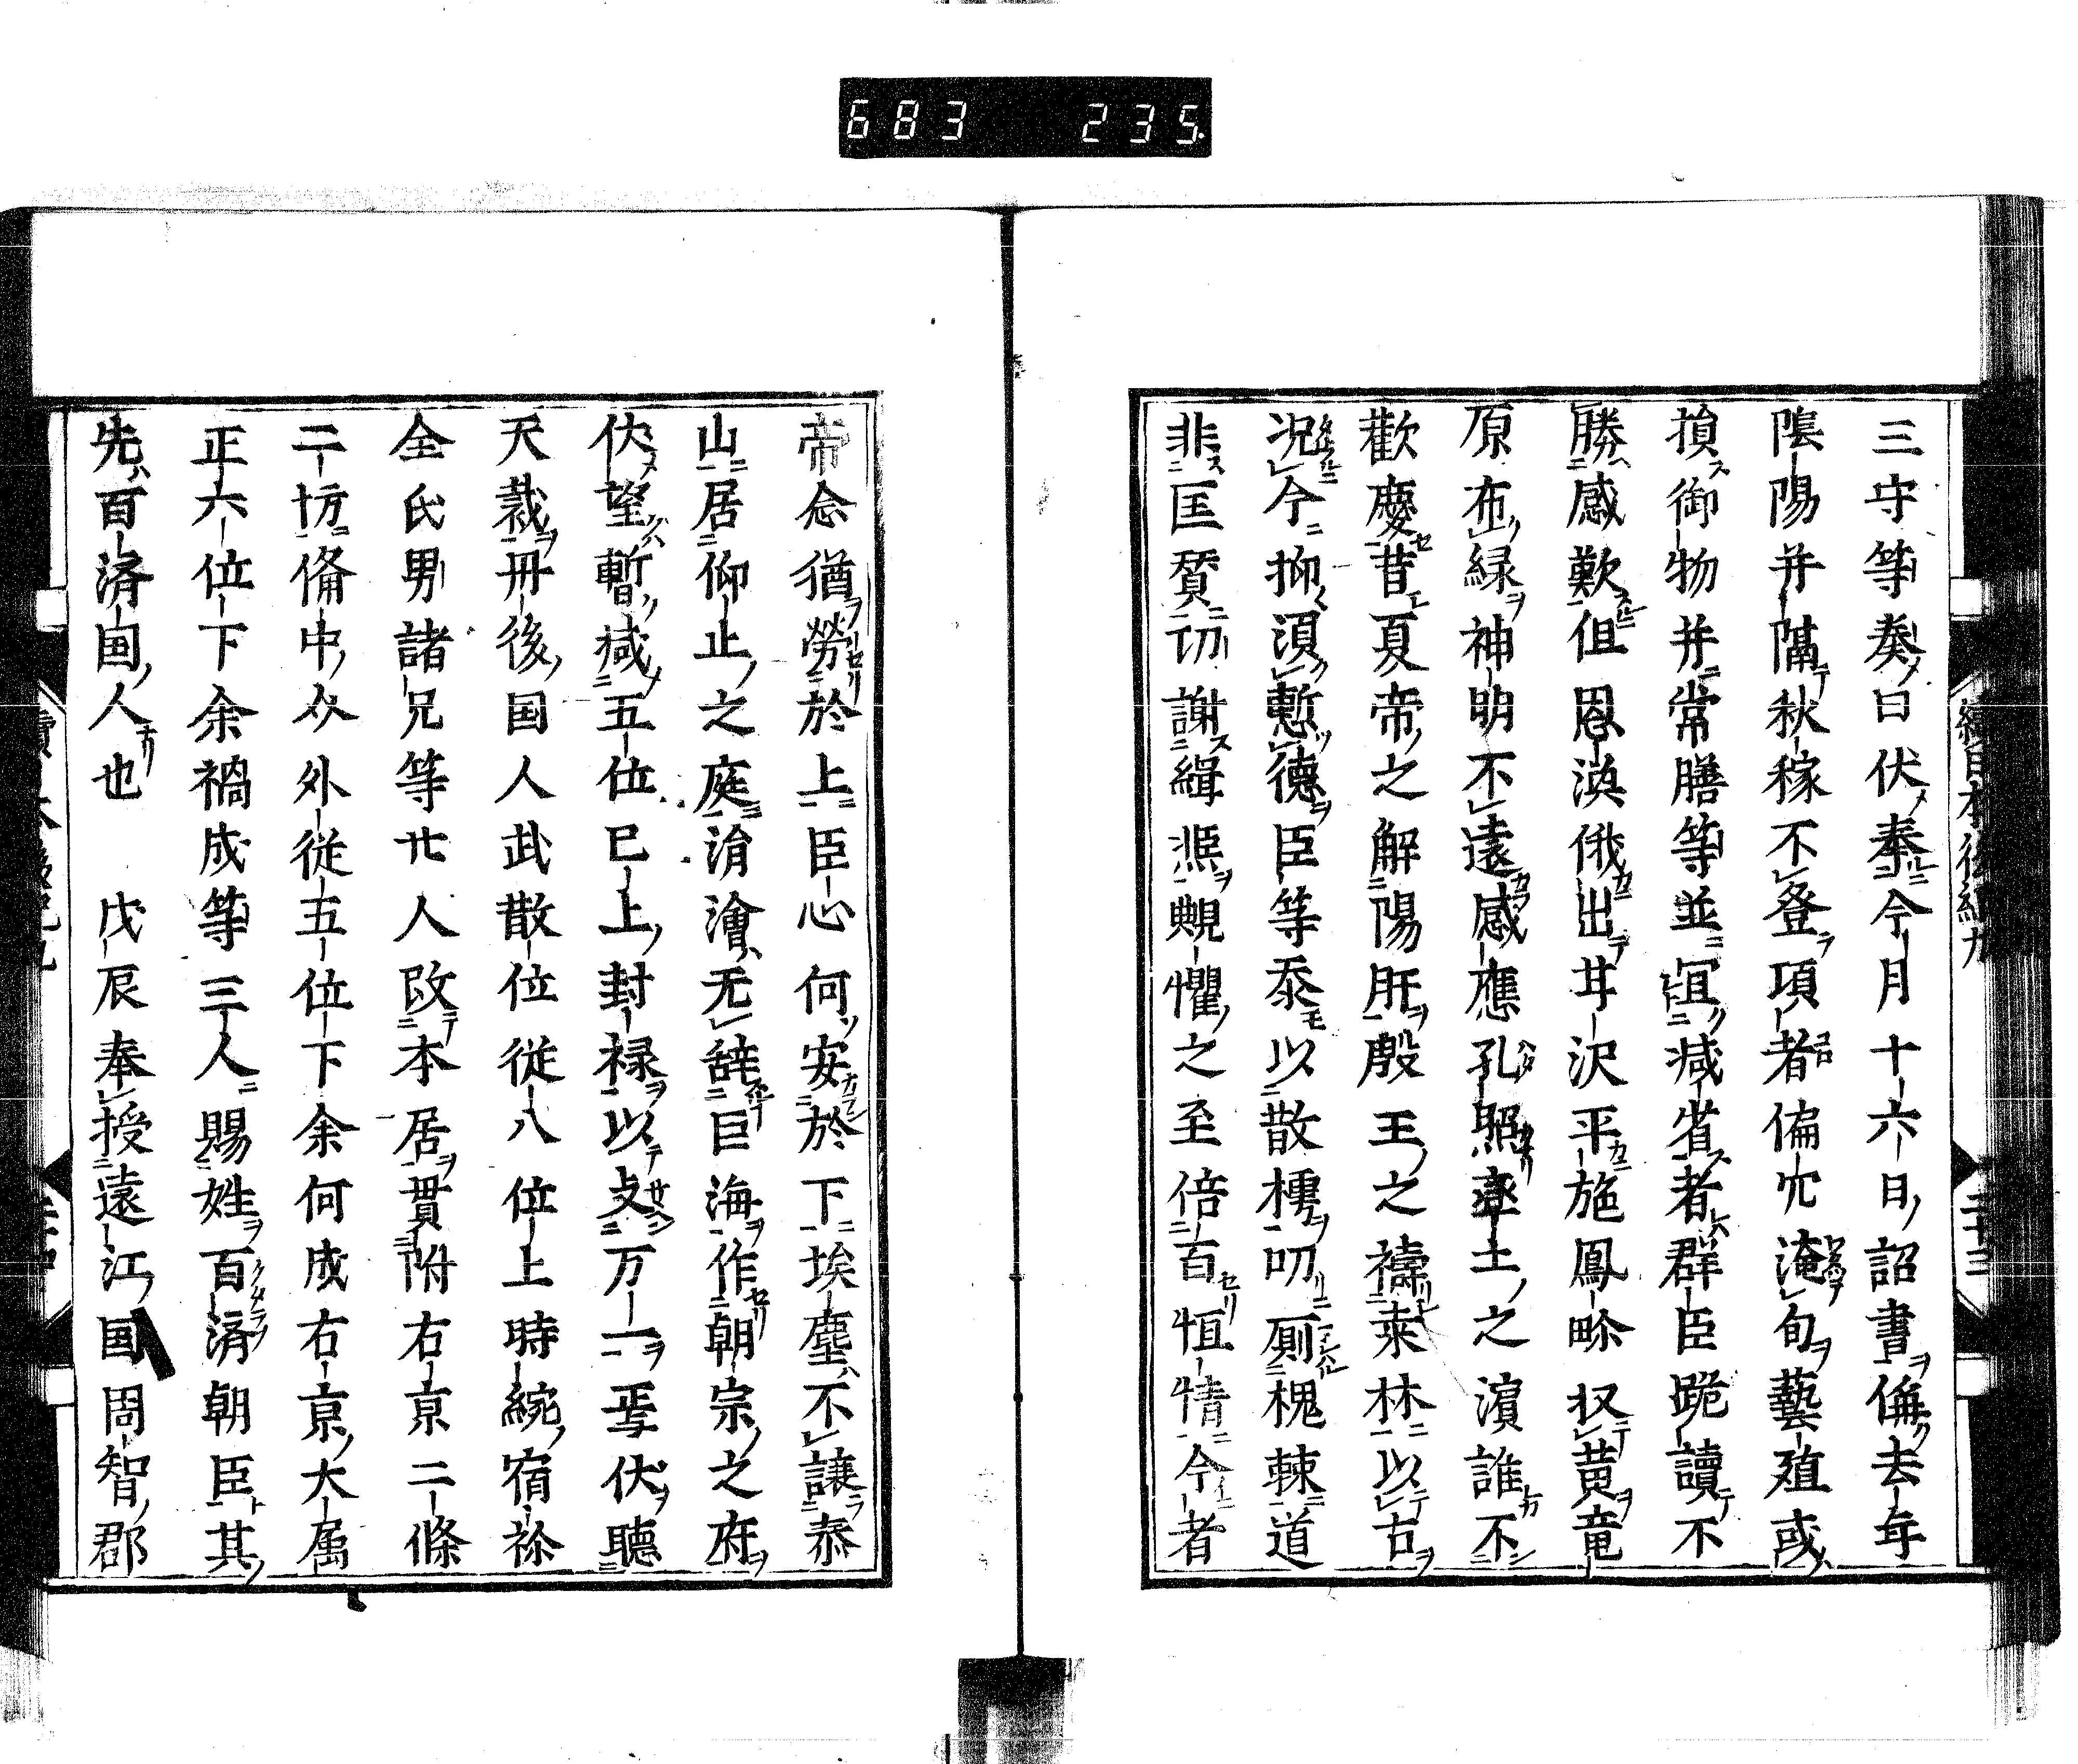 683 235
續日本後紀九
二十三
三守等奏曰伏奉今月十六日詔書偁去年
陰陽并隔秋稼不登項者偏冘淹旬藝殖或
損御物并常膳等並冝减省者群臣跪讀不
勝感歎但恩渙俄出甘沢平施鳳畧
黄竜
原布緑神明不遠感應孔照率土之濱誰不
歡慶昔夏帝之解陽肝殷王之禱桒林以古
况今抑湏慙德臣等忝以散樗叨厠槐棘道
非匡賛切謝緝熈䩄懼之至倍百恒情今者
帝念猶勞於上臣心何安於下埃塵不讓泰
山居仰止之庭涓澮无辞巨海作朝宗之府
伏望暫减五位已上封禄以攴万一焉伏聽
天裁丹後国人武散位從八位上時統宿祢
全氏男諸兄等廿人改本居貫附右京二條
二坊備中介外從五位下余何成右京大属
正六位下余福成等三人賜姓百済朝臣其
先百済国人也　戊辰奉授遠江国周智郡